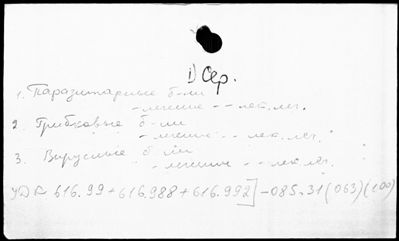 1) Сер.
1. Паразитарные б-ни
-лечение -- лек. лег.
2. Грибковые б-ни
-лечение -- лек. лег.
3. Вирусные б-ни
-лечение -- лек. лег.
УДК 616.99+616.988+616.992]-085.31(063)(100)